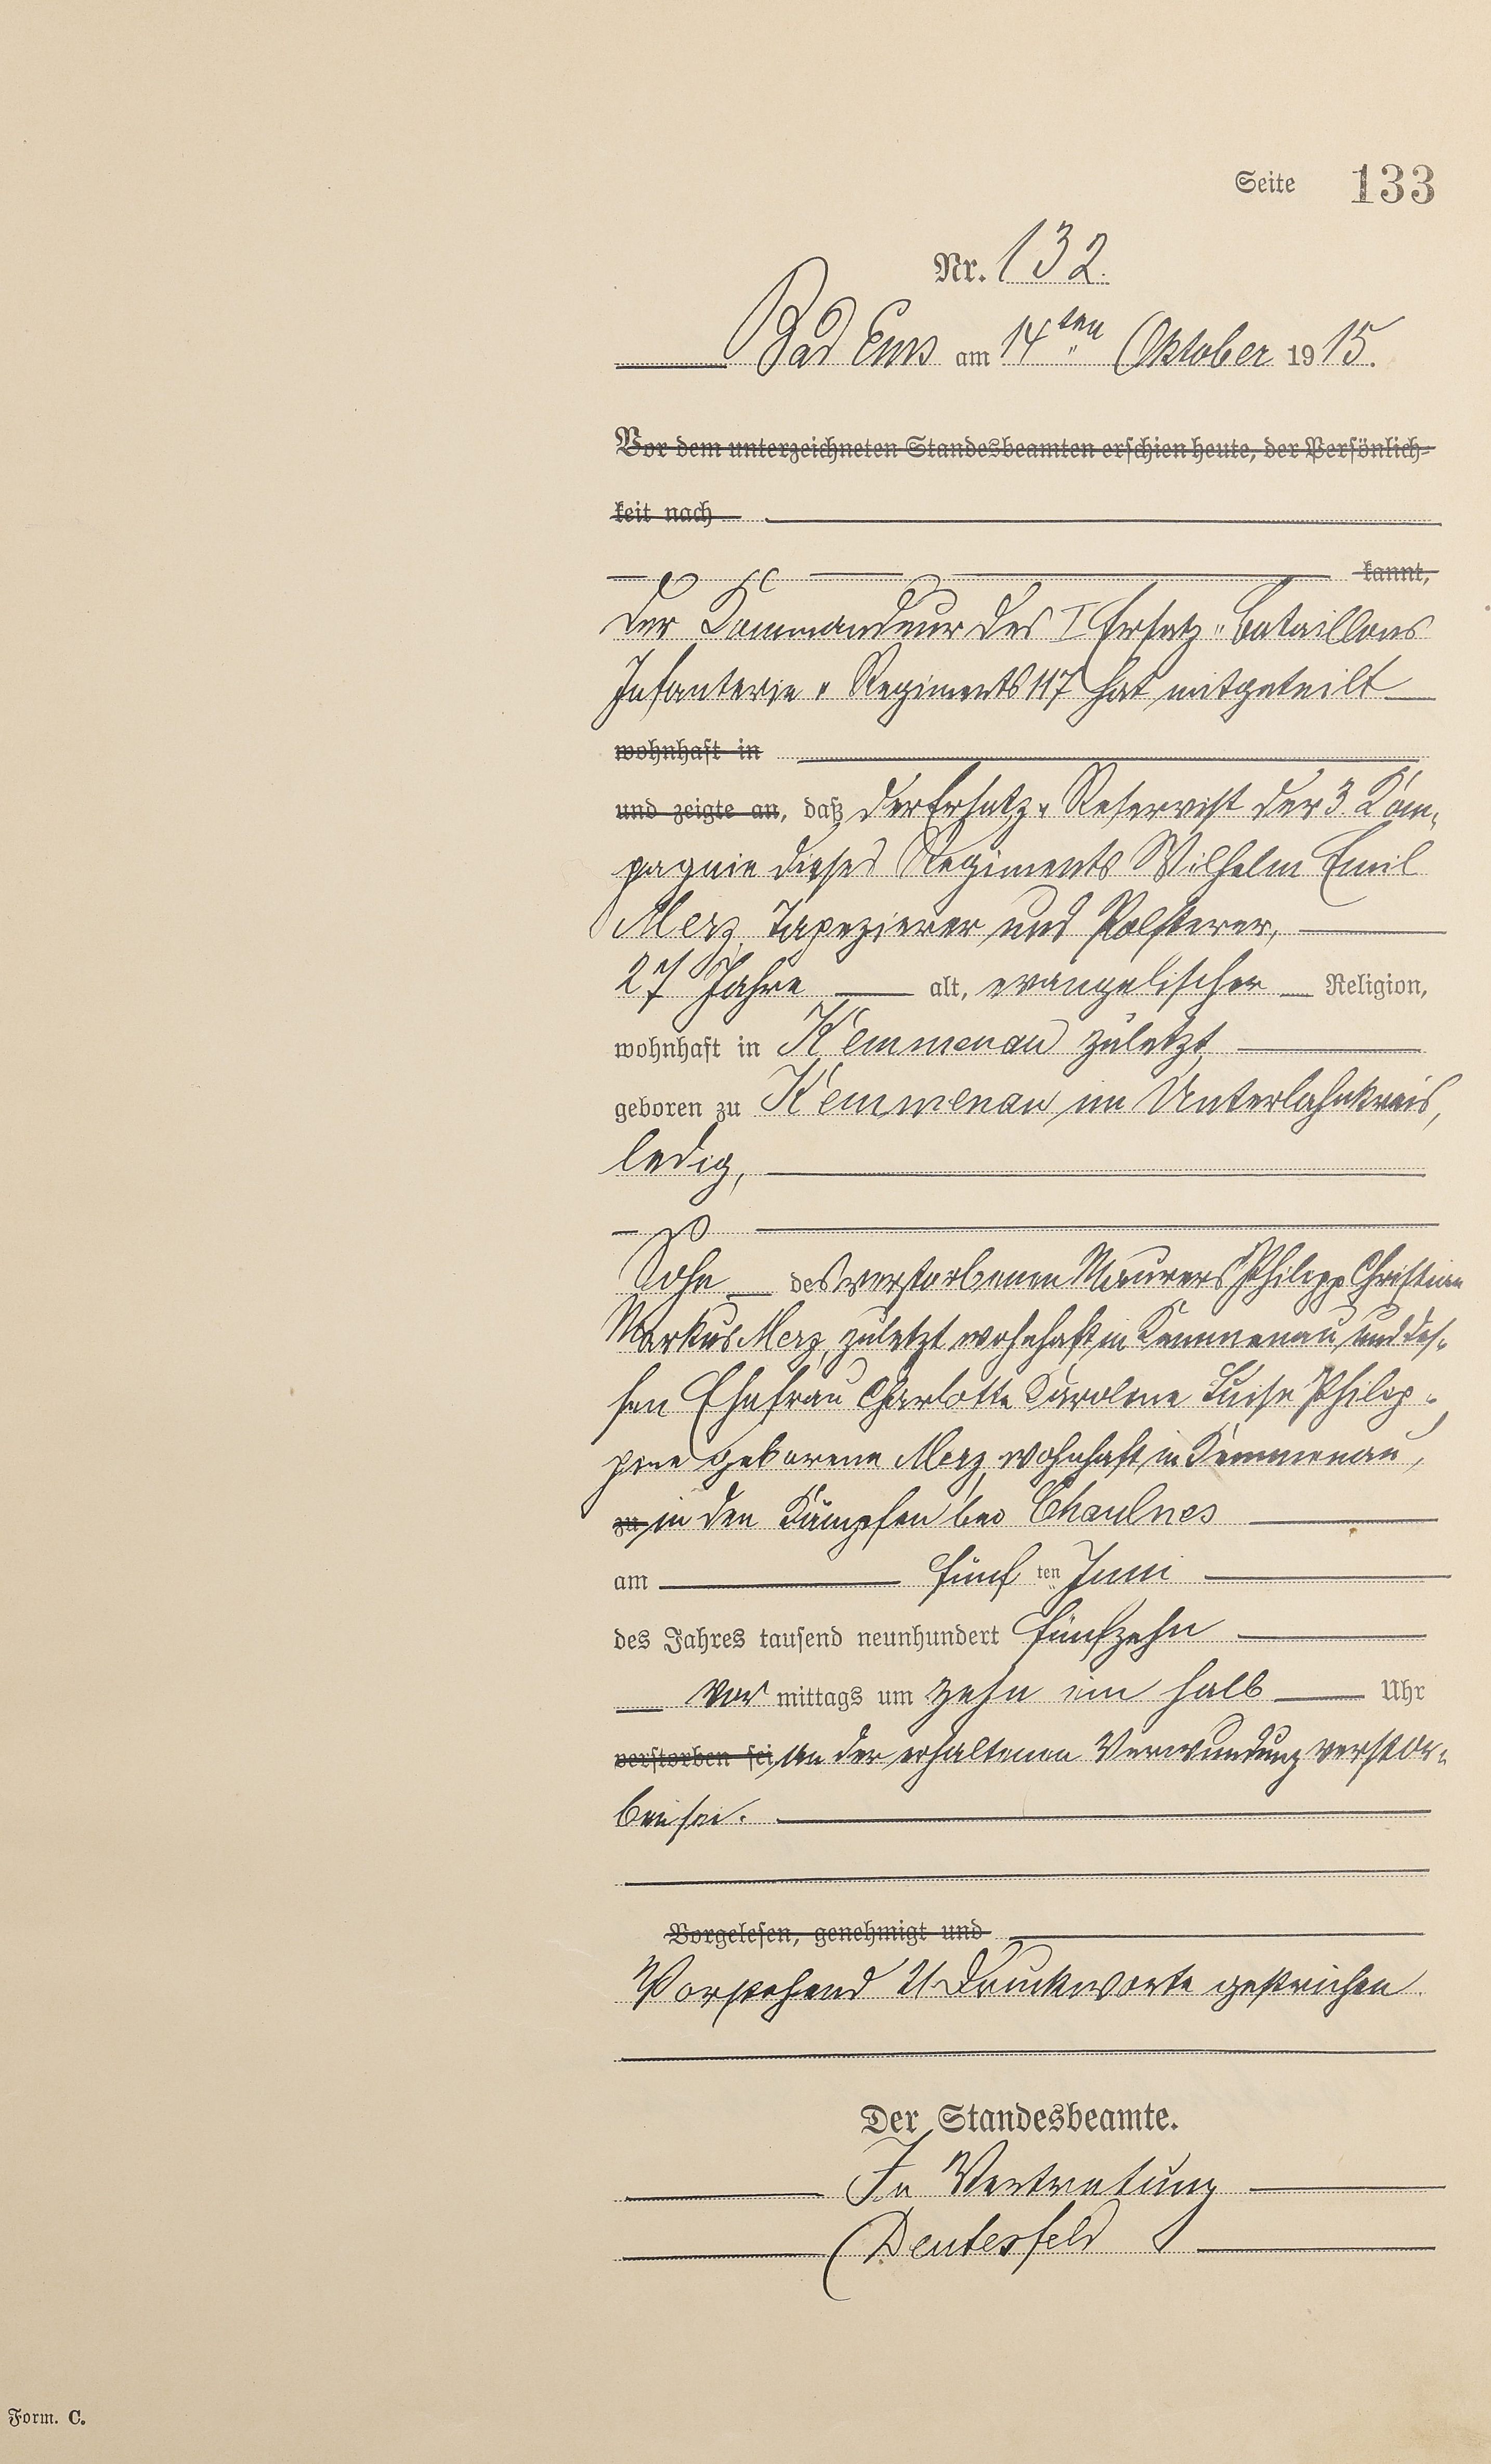 Seite 133
Nr. 132.
Bad Ems am 14ten Oktober 1915.
Vor dem unterzeichneten Standesbeamten erschien heute, der Persönlich-
keit nach
kannt,
Der Kommandeur des I Ersatz-Bataillons
Infanterie-Regiments 117 hat mitgeteilt
wohnhaft in
und zeigte an, daß der Ersatz-Reservist der 3. Kom-
pagnie dieses Regiments Wilhelm Emil
Merz, Tapezierer und Polsterer,
27 Jahre alt, evangelischer Religion,
wohnhaft in Kemmenau zuletzt,
geboren zu Kemmenau im Unterlahnkreis,
ledig,
Sohn des verstorbenen Maurers Philipp Christian
Markus Merz, zuletzt wohnhaft in Kemmenau, und des-
sen Ehefrau Charlotte Karoline Luise Philip-
pine geborene Merz, wohnhaft in Kemmenau,
zu in den Kämpfen bei Chaulnes
am fünf ten Juni
des Jahres tausend neunhundert fünfzehn
vor mittags um zehn ein halb Uhr
verstorben sei, an der erhaltenen Verwundung verstor-
ben sei.
Vorgelesen, genehmigt und
Vorstehend 21 Druckworte gestrichen.
Der Standesbeamte.
In Vertretung
Deutesfeld
Form. C.